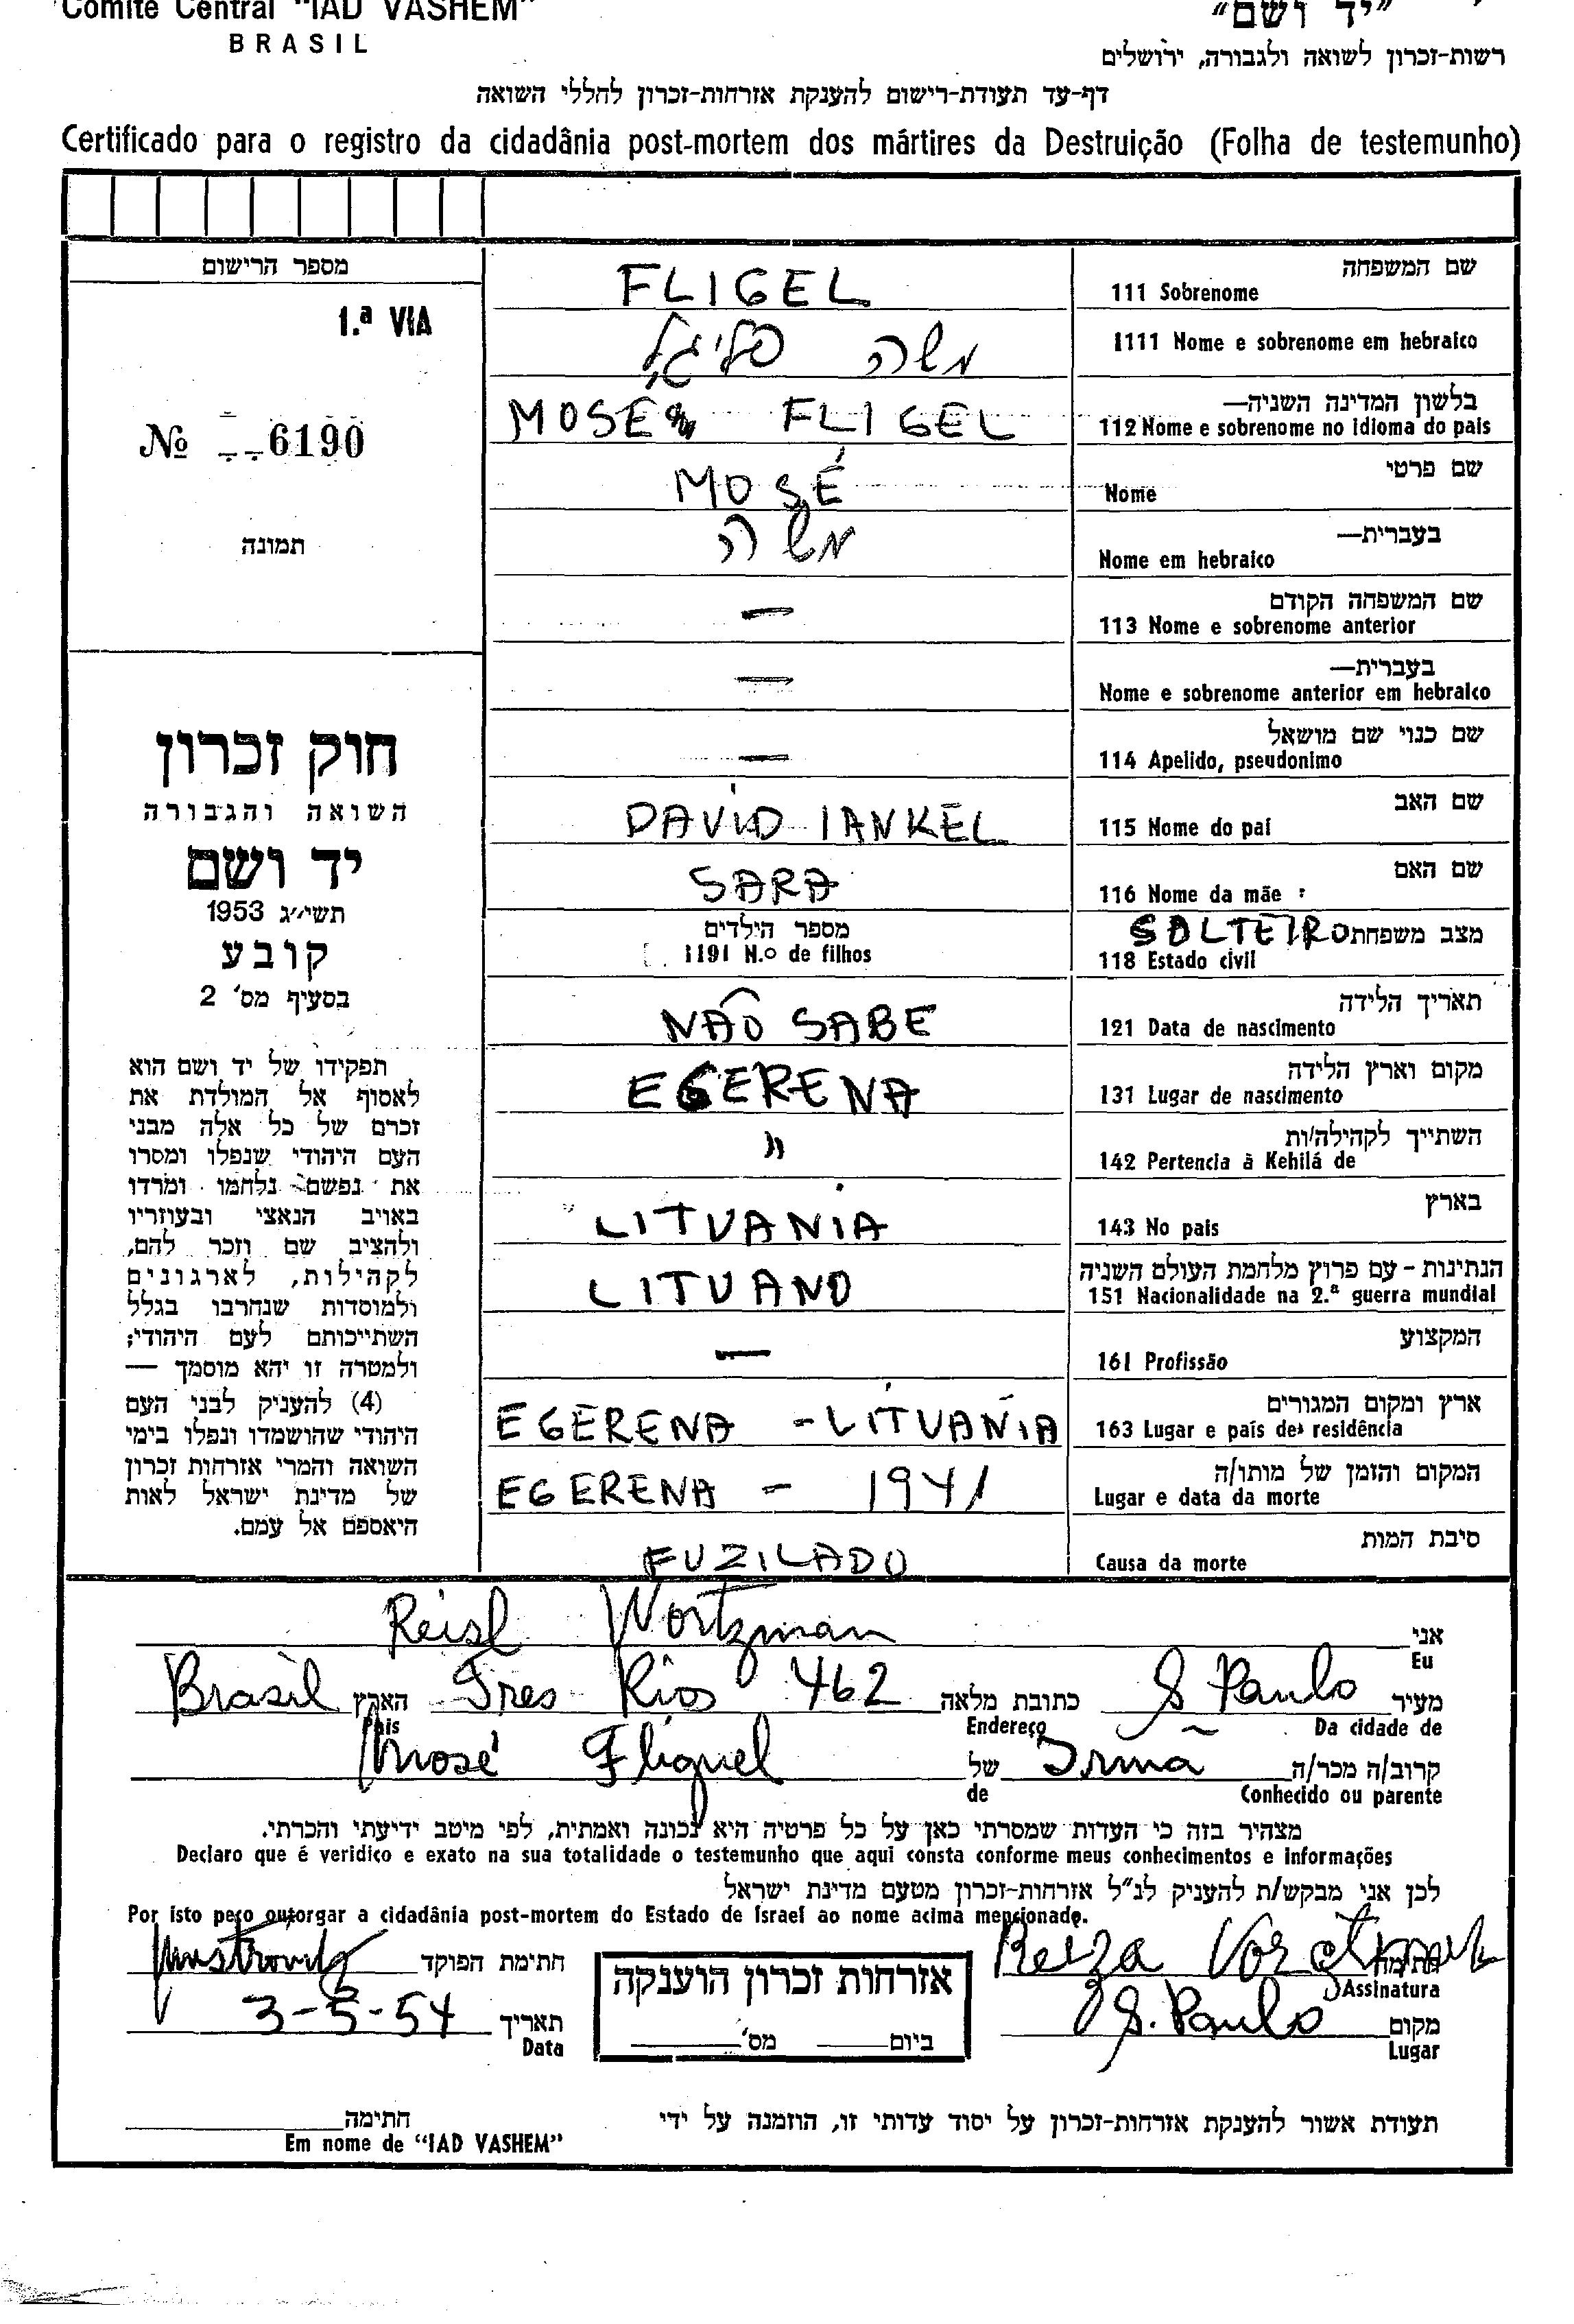 Comité Central "IAD VASHEM"
BRASIL
"יד ושם"
רשות-זכרון לשואה ולגבורה, ירושלים
דף-עד תעודת-רישום להענקת אזרחות-זכרון לחללי השואה
Certificado para o registro da cidadânia post-mortem dos mártires da Destruição (Folha de testemunho)
מספר הרישום
1.ª VIA
№ 6190
תמונה
חוק זכרון
השואה והגבורה
יד ושם
תשי״ג 1953
קובע
בסעיף מס' 2
תפקידו של יד ושם הוא
לאסוף אל המולדת את
זכרם של כל אלה מבני
העם היהודי שנפלו ומסרו
את נפשם נלחמו ומרדו
באויב הנאצי ובעוזריו
ולהציב שם וזכר להם,
לקהילות, לארגונים
ולמוסדות שנחרבו בגלל
השתייכותם לעם היהודי;
ולמטרה זו יהא מוסמך —
(4) להעניק לבני העם
היהודי שהושמדו ונפלו בימי
השואה והמרי אזרחות זכרון
של מדינת ישראל לאות
היאספם אל עמם.
שם המשפחה
111 Sobrenome FLIGEL
1111 Nome e sobrenome em hebraico משה פליגל
בלשון המדינה השניה—
112 Nome e sobrenome no idioma do pais MOSÉ FLIGEL
שם פרטי
Nome MOSÉ
בעברית—
Nome em hebraico משה
שם המשפחה הקודם
113 Nome e sobrenome anterior —
בעברית—
Nome e sobrenome anterior em hebraico —
שם כנוי שם מושאל
114 Apelido, pseudonimo —
שם האב
115 Nome do pai DAVID IANKEL
שם האם
116 Nome da mãe : SARA
מצב משפחתי SOLTEIRO
118 Estado civil
מספר הילדים
1191 N.o de filhos
תאריך הלידה
121 Data de nascimento NÃO SABE
מקום וארץ הלידה
131 Lugar de nascimento EGERENA
השתייך לקהילה/ות
142 Pertencia à Kehilá de "
בארץ
143 No pais LITUANIA
הנתינות - עם פרוץ מלחמת העולם השניה
151 Nacionalidade na 2.ª guerra mundial LITUANO
המקצוע
161 Profissão —
ארץ ומקום המגורים
163 Lugar e país de residência EGERENA - LITUANIA
המקום והזמן של מותו/ה
Lugar e data da morte EGERENA - 1941
סיבת המות
Causa da morte FUZILADO
אני Reisl Wortzman
Eu
מעיר S Paulo כתובת מלאה Tres Rios 462 הארץ Brasil
Da cidade de Endereço Pais
קרוב/ה מכר/ה Irmã של Mosé Fliguel
Conhecido ou parente de
מצהיר בזה כי העדות שמסרתי כאן על כל פרטיה היא נכונה ואמתית, לפי מיטב ידיעתי והכרתי.
Declaro que é veridico e exato na sua totalidade o testemunho que aqui consta conforme meus conhecimentos e informações
לכן אני מבקש/ת להעניק לנ"ל אזרחות-זכרון מטעם מדינת ישראל
Por isto peço outorgar a cidadânia post-mortem do Estado de Israel ao nome acima mencionado.
חתימה Reiza
Assinatura
חתימת הפוקד
אזרחות זכרון הוענקה
ביום מס'
מקום S. Paulo
Lugar
תאריך 3-5-54
Data
תעודת אשור להענקת אזרחות-זכרון על יסוד עדותי זו, הוזמנה על ידי
חתימה
Em nome de "IAD VASHEM"